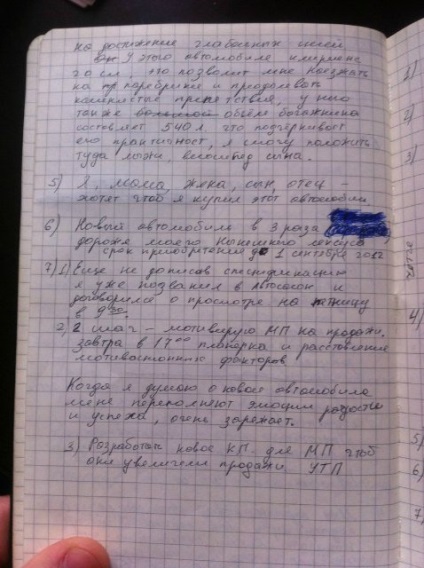 на достижение глобальных целей
У этого автомобиля клиренс
20 см, это позволит мне наезжать
на поребрики и продолевать
каменистые препятствия, у него
также большой объём багажника
составляет 540 л. это подчёркивает
его практичност, я смогу положить
туда лыжи, велосипед сына.
5) Я, мама, жена, сын, отец –
хотят чтоб я купил этот автомобиль.
6) Новый автомобиль в 3 раза
дороже моего нынешнего лексуса,
срок приобретения до 1 сентября 2012
7) 1) Еще не дописав спецификацию
я уже позвонил в автосалон и
договорился о просмотре на пятницу
в 9 30.
2) 2 шаг – мотивирую МП на продажи,
завтра в 17 00 планёрка и расставление
мотивационных факторов
Когда я думаю о новом автомобиле
меня переполняют эмоции радости
и успеха, очень заряжает.
3) Разработал новое КП для МП чтоб
они увеличили продажи УТП
1)
2)
3)
4)
5)
6)
7)